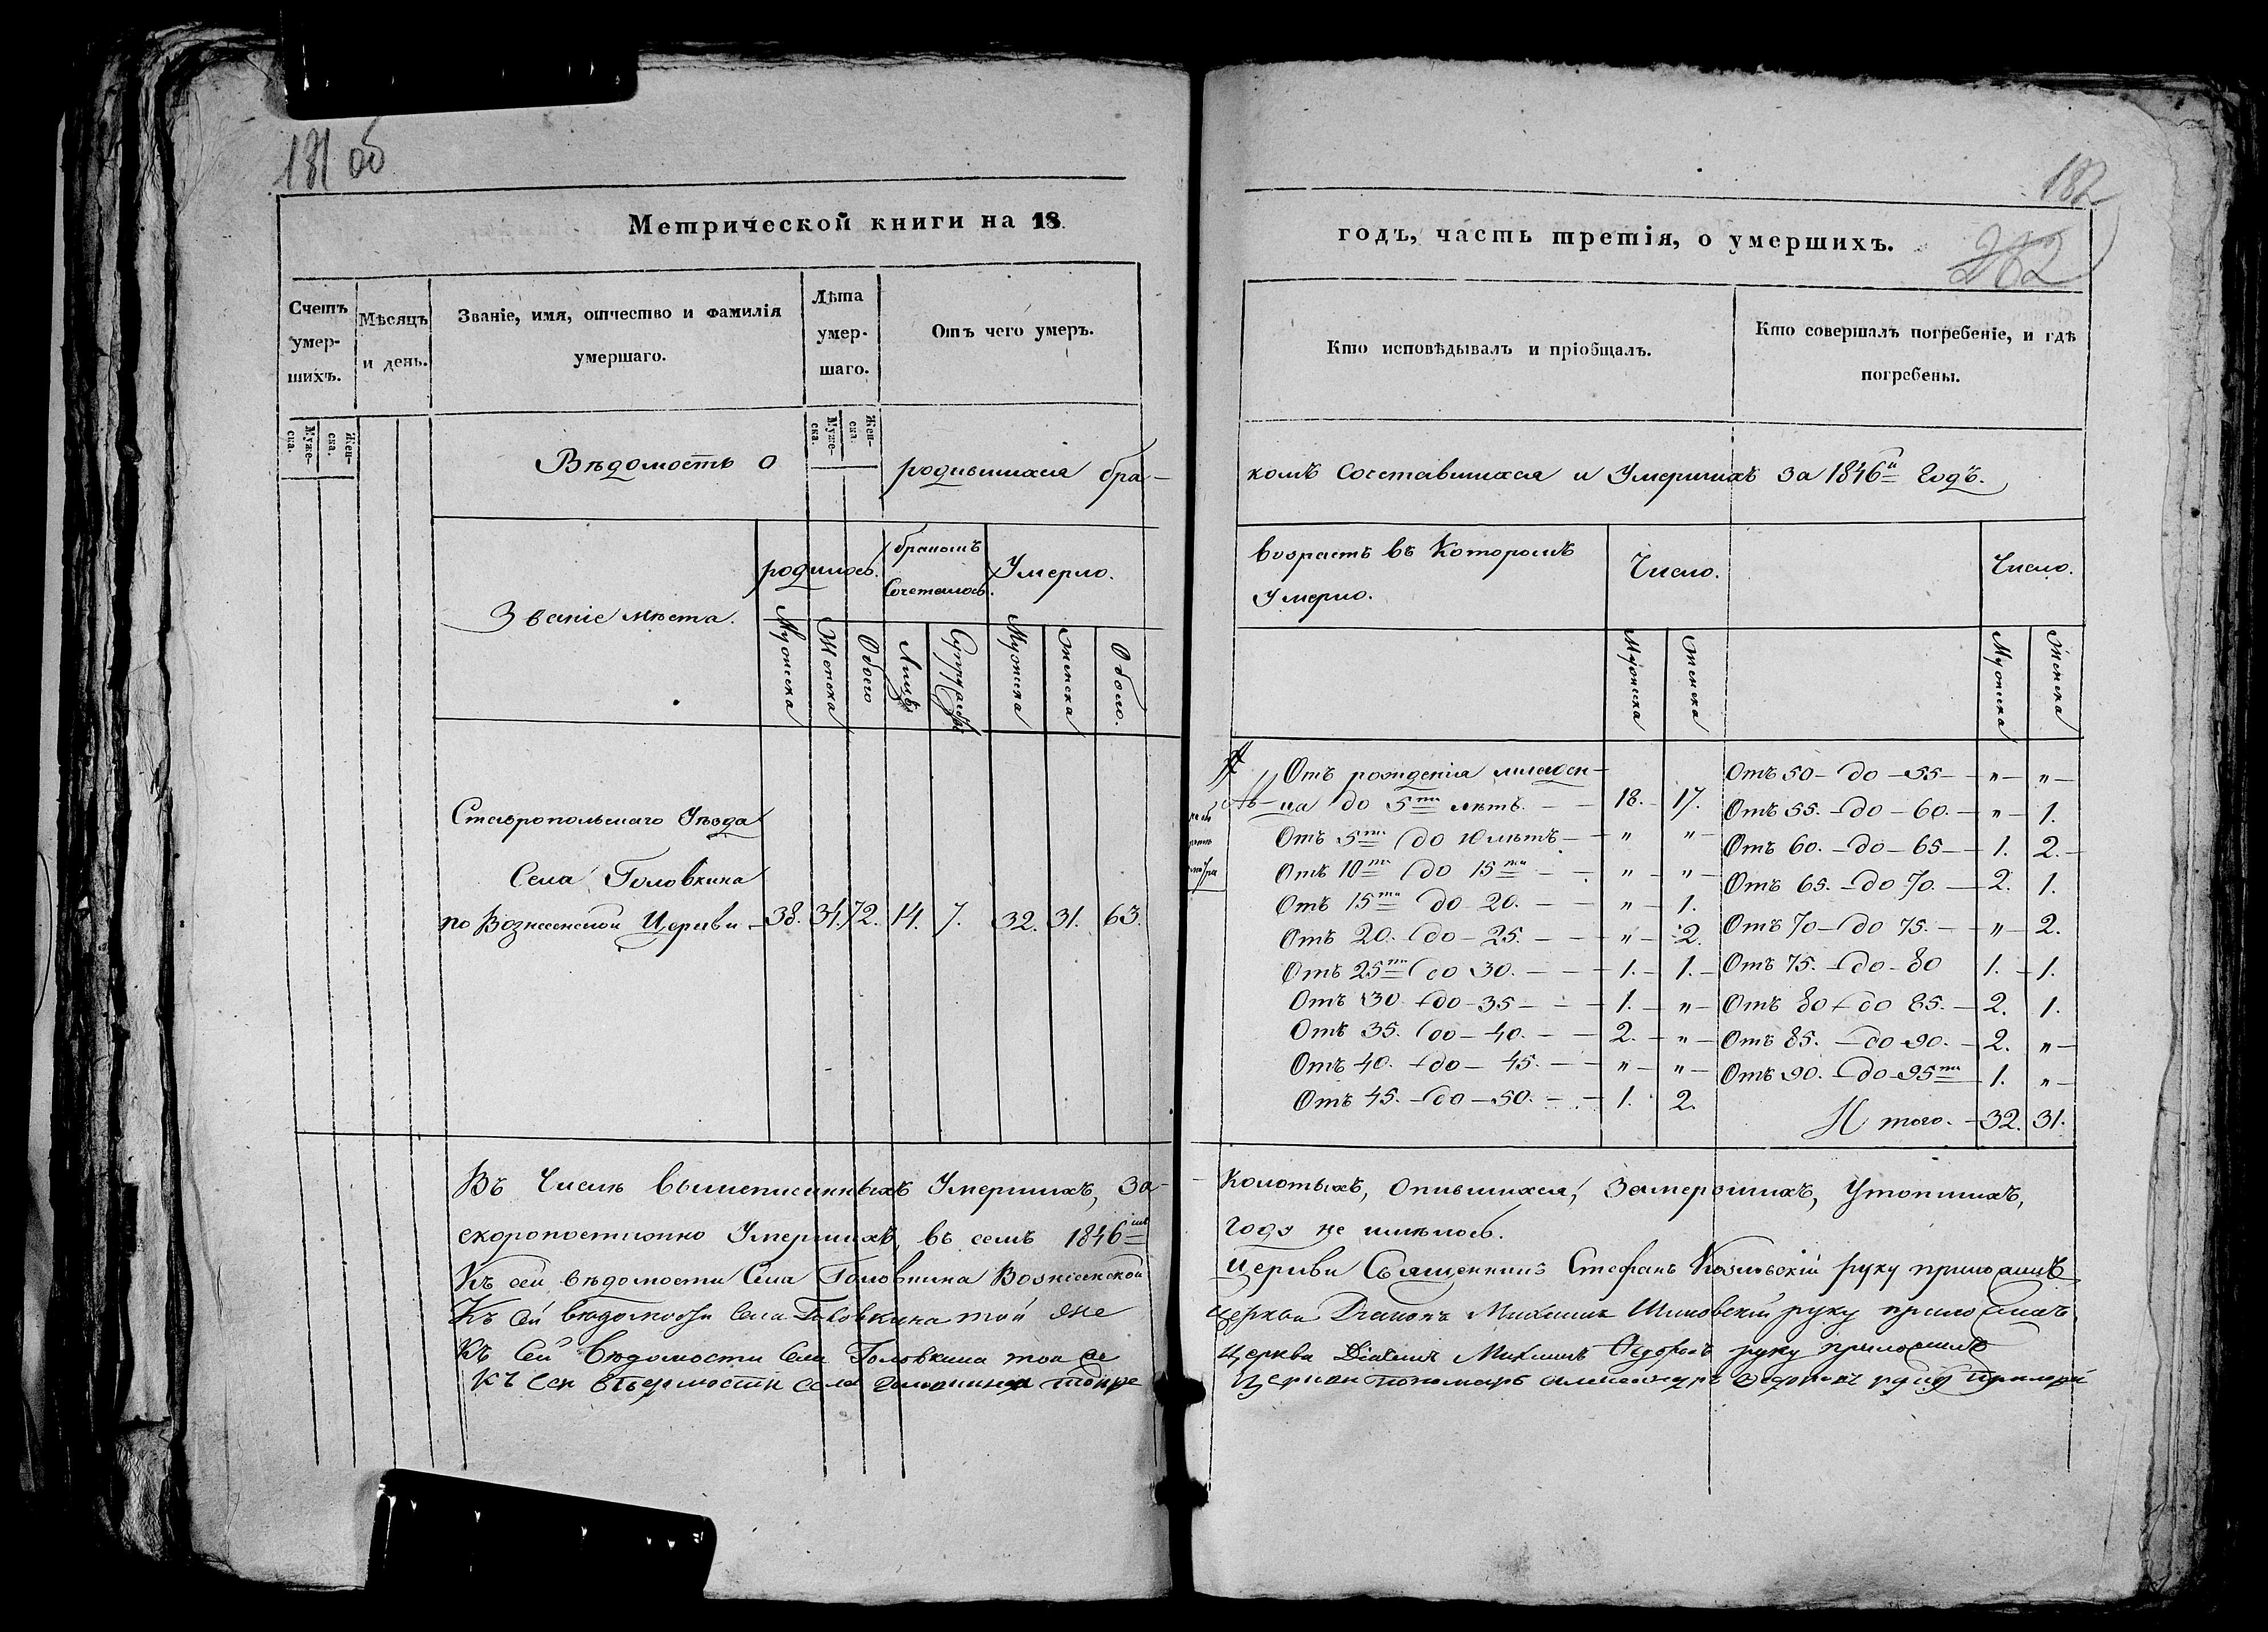 181 об
182
262
Метрической книги на 18
годъ, часть третія, о умершихъ.
Счетъ умер-шихъ.
Мѣсяцъ и день.
Званіе, имя, отчество и фамилія умершаго.
Лѣта умер-шаго.
Отъ чего умеръ.
Кто исповѣдывалъ и пріобщалъ.
Кто совершалъ погребеніе, и гдѣ погребены.
Муже-ска. Жен-ска.
Муже-ска. Жен-ска.
Вѣдомость о родившихся бра-
комъ сочетавшихся и Умершихъ за 1846й Годъ.
Званіе мѣста.
родилось.
бракомъ Сочеталось.
Умерло.
Мужеска Женска Обоего Лицъ Супружествъ Мужеска Женска Обоего.
возрастъ въ Которомъ Умерло.
Число.
Число.
Мужеска Женска
Мужеска Женска
Ставропольскаго Уѣзда
Села Головкина
по Вознесенской Церкви – 38. 34. 72. 14. 7. 32. 31. 63.
Отъ рожденія младен-
ца до 5ти лѣтъ. – 18. – 17.
Отъ 5ти до 10 лѣтъ – " "
Отъ 10ти до 15ти – " "
Отъ 15ти до 20. – " 1.
Отъ 20. до – 25. – " 2.
Отъ 25ти до 30. – 1. – 1.
Отъ 30 – до – 35 – 1. – "
Отъ 35. до – 40. – 2. – "
Отъ 40. – до – 45. – " – "
Отъ 45. – до – 50. – 1. 2.
Отъ 50 – до – 55 – " – "
Отъ 55. – до – 60. – " – 1.
Отъ 60. – до – 65 – 1. 2.
Отъ 65. – до 70. – 2. 1.
Отъ 70 – до 75. – " – 2.
Отъ 75. – до – 80 1. – 1.
Отъ 80 – до 85. – 2. 1.
Отъ 85. – до 90. – 2. "
Отъ 90. – до – 95ти – 1. "
И того. – 32. 31.
Въ Числѣ вышеписанныхъ Умершихъ, За-
колотыхъ, Опившихся, Замерзшихъ, Утопшихъ,
скоропостижно Умершихъ, въ семъ 1846мъ
Году не имѣлось.
Къ сей вѣдомости Села Головкина Вознесенской
Церкви Священникъ Стефанъ Козловскій руку приложилъ
Къ сей вѣдомости Села Головкина той же
Церкви Діаконъ Михаилъ руку приложилъ
Къ Сей Вѣдомости Села Головкина той же
Церкви Дьячекъ Михаилъ Федоровъ руку приложилъ
Къ сей вѣдомости села Головкина той же
Церкви пономарь Александръ руку приложилъ